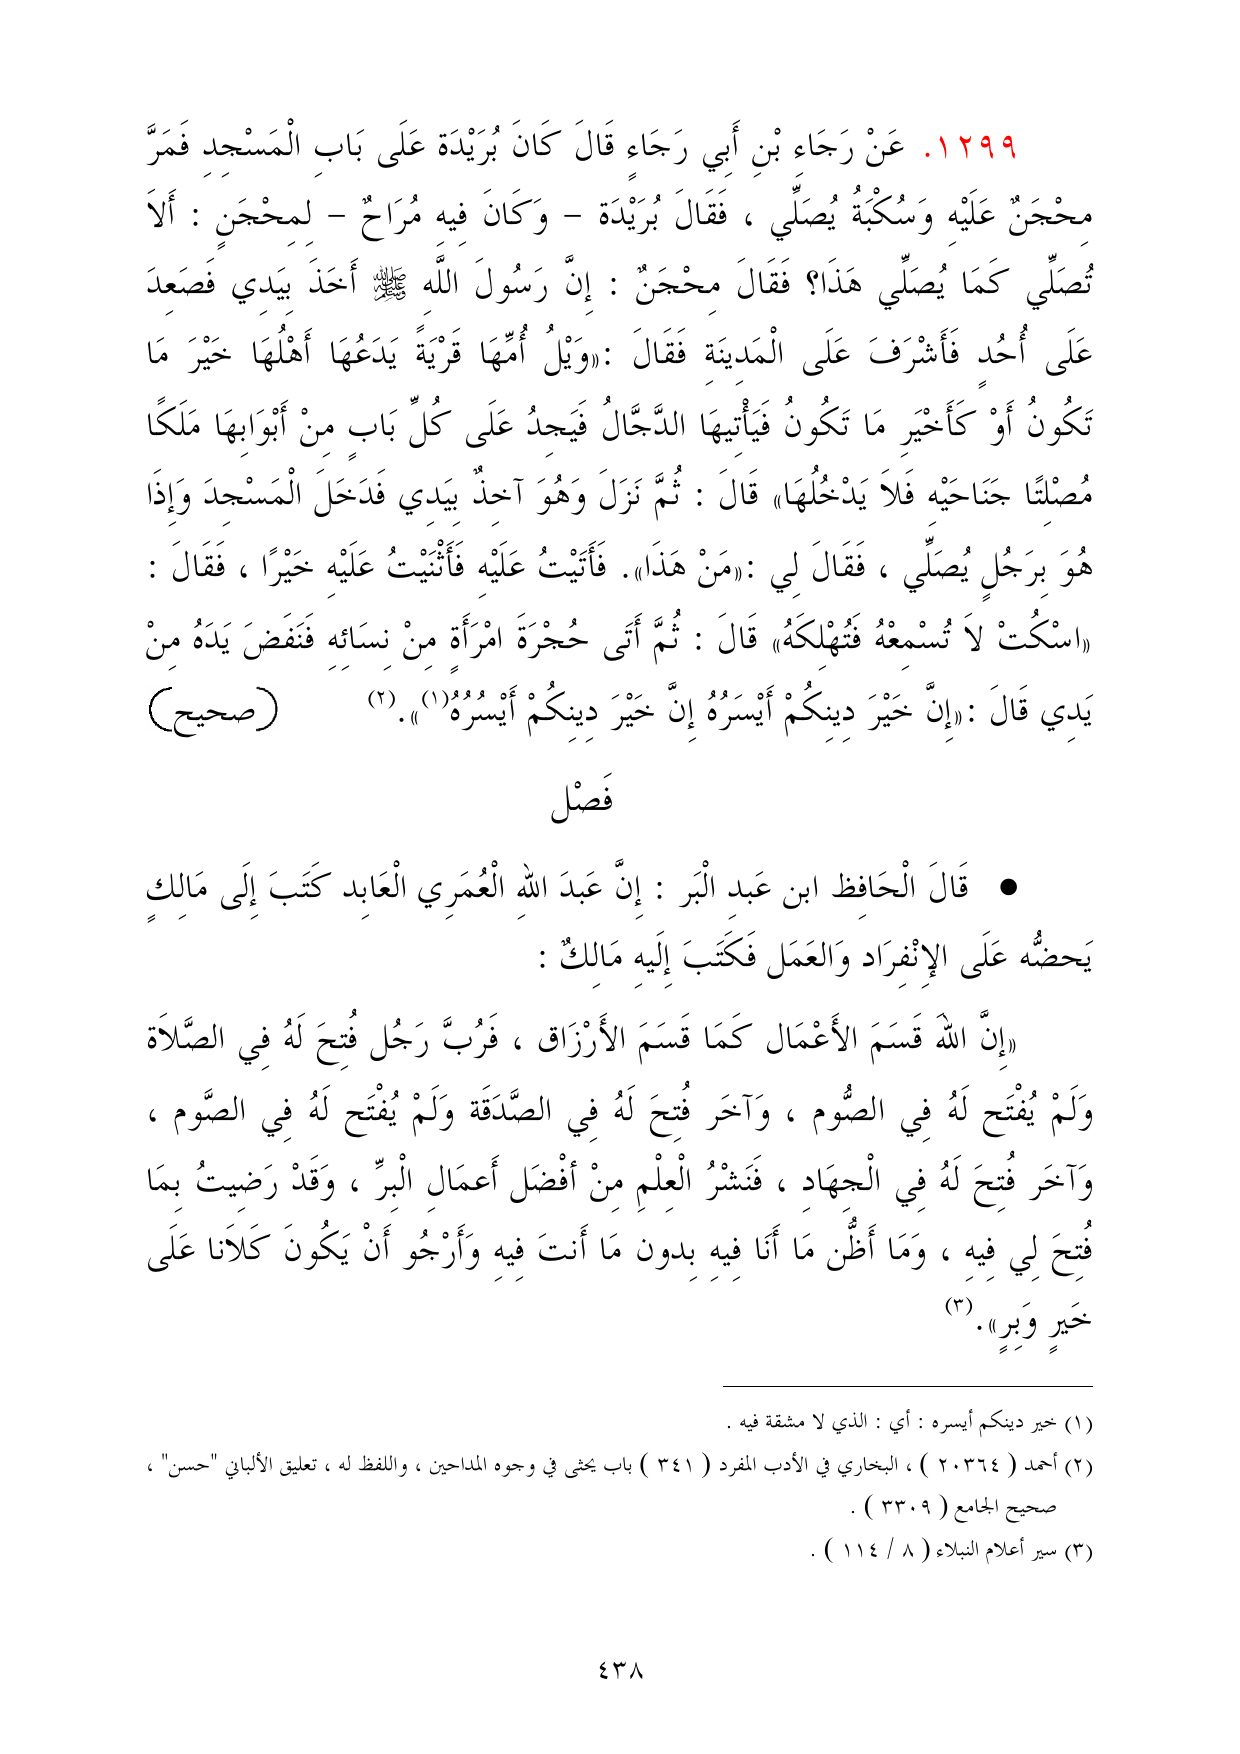 ١٢٩٩. عَنْ رَجَاءِ بْنِ أَبِي رَجَاءٍ قَالَ كَانَ بُرَيْدَة عَلَى بَابِ الْمَسْجِدِ فَمَرَّ
مِحْجَنٌ عَلَيْهِ وَسُكْبَةُ يُصَلِّي ، فَقَالَ بُرَيْدَة – وَكَانَ فِيهِ مُرَاحٌ – لِمِحْجَنٍ : أَلاَ
تُصَلِّي كَمَا يُصَلِّي هَذَا؟ فَقَالَ مِحْجَنٌ : إِنَّ رَسُولَ اللَّهِ ﷺ أَخَذَ بِيَدِي فَصَعِدَ
عَلَى أُحُدٍ فَأَشْرَفَ عَلَى الْمَدِينَةِ فَقَالَ :«وَيْلُ أُمِّهَا قَرْيَةً يَدَعُهَا أَهْلُهَا خَيْرَ مَا
تَكُونُ أَوْ كَأَخْيَرِ مَا تَكُونُ فَيَأْتِيهَا الدَّجَّالُ فَيَجِدُ عَلَى كُلِّ بَابٍ مِنْ أَبْوَابِهَا مَلَكًا
مُصْلِتًا جَنَاحَيْهِ فَلاَ يَدْخُلُهَا» قَالَ : ثُمَّ نَزَلَ وَهُوَ آخِذٌ بِيَدِي فَدَخَلَ الْمَسْجِدَ وَإِذَا
هُوَ بِرَجُلٍ يُصَلِّي ، فَقَالَ لِي :«مَنْ هَذَا». فَأَتَيْتُ عَلَيْهِ فَأَثْنَيْتُ عَلَيْهِ خَيْرًا ، فَقَالَ :
«اسْكُتْ لاَ تُسْمِعْهُ فَتُهْلِكَهُ» قَالَ : ثُمَّ أَتَى حُجْرَةَ امْرَأَةٍ مِنْ نِسَائِهِ فَنَفَضَ يَدَهُ مِنْ
يَدِي قَالَ :«إِنَّ خَيْرَ دِينِكُمْ أَيْسَرُهُ إِنَّ خَيْرَ دِينِكُمْ أَيْسُرُهُ(١)».(٢) (صحيح)
فَصْل
● قَالَ الْحَافِظ ابن عَبدِ الْبَر : إِنَّ عَبدَ اللهِ الْعُمَرِي الْعَابِد كَتَبَ إِلَى مَالِكٍ
يَحضُّه عَلَى الإِنْفِرَاد وَالعَمَل فَكَتَبَ إِلَيهِ مَالِكٌ :
«إِنَّ اللهَ قَسَمَ الأَعْمَال كَمَا قَسَمَ الأَرْزَاق ، فَرُبَّ رَجُل فُتِحَ لَهُ فِي الصَّلاَة
وَلَمْ يُفْتَح لَهُ فِي الصُّوم ، وَآخَر فُتِحَ لَهُ فِي الصَّدَقَة وَلَمْ يُفْتَح لَهُ فِي الصَّوم ،
وَآخَر فُتِحَ لَهُ فِي الْجِهَادِ ، فَنَشْرُ الْعِلْمِ مِنْ أفْضَل أَعمَالِ الْبِرِّ ، وَقَدْ رَضِيتُ بِمَا
فُتِحَ لِي فِيهِ ، وَمَا أَظُّن مَا أَنَا فِيهِ بِدون مَا أَنتَ فِيهِ وَأَرْجُو أَنْ يَكُونَ كَلاَنا عَلَى
خَيرٍ وَبِرٍ».(٣)
(١) خير دينكم أيسره : أي : الذي لا مشقة فيه .
(٢) أحمد ( ٢٠٣٦٤ ) ، البخاري في الأدب المفرد ( ٣٤١ ) باب يحثى في وجوه المداحين ، واللفظ له ، تعليق الألباني "حسن" ،
صحيح الجامع ( ٣٣٠٩ ) .
(٣) سير أعلام النبلاء ( ٨ / ١١٤ ) .
٤٣٨